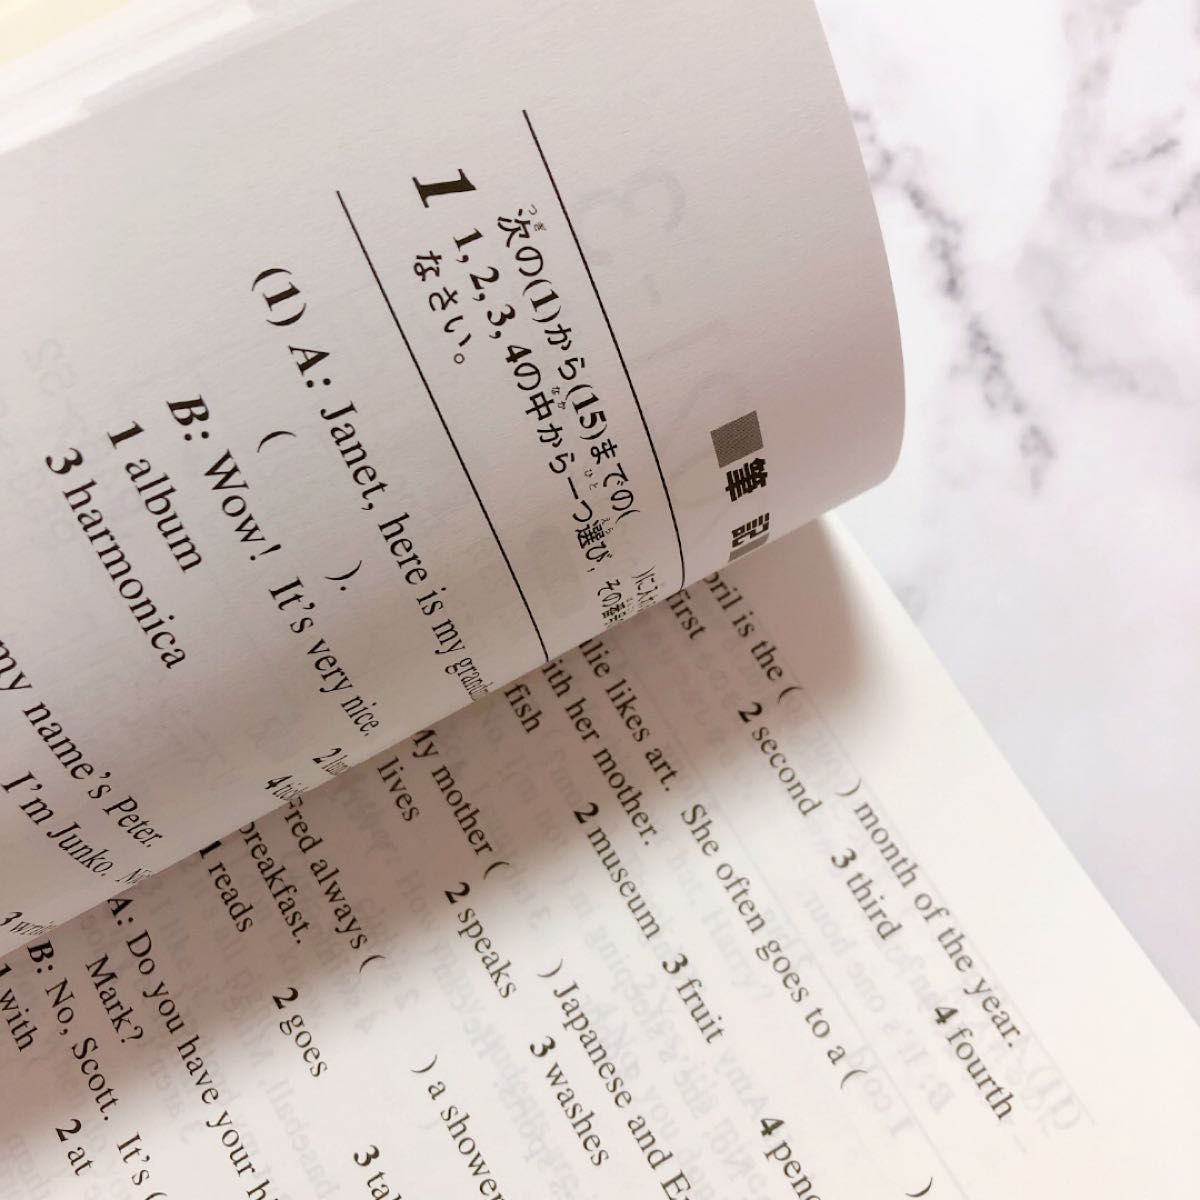 筆記
1 次の(1)から(15)までの(
)に入
1, 2, 3, 4の中から一つ選び, その番号
なさい。
(1) A: Janet, here is my
( ).
B: Wow! It's very nice.
1 album
3 harmonica
my name's Peter.
I'm Junko.
is the ( ) month of the year.
2 second 3 third 4 fourth
likes art. She often goes to a (
with her mother.
fish 2 museum 3 fruit
My mother ( ) Japanese and
lives 2 speaks 3 washes
Fred always ( ) a shower
breakfast.
1 reads 2 goes 3
A: Do you have your
Mark?
B: No, Scott. It's (
1 with 2 at